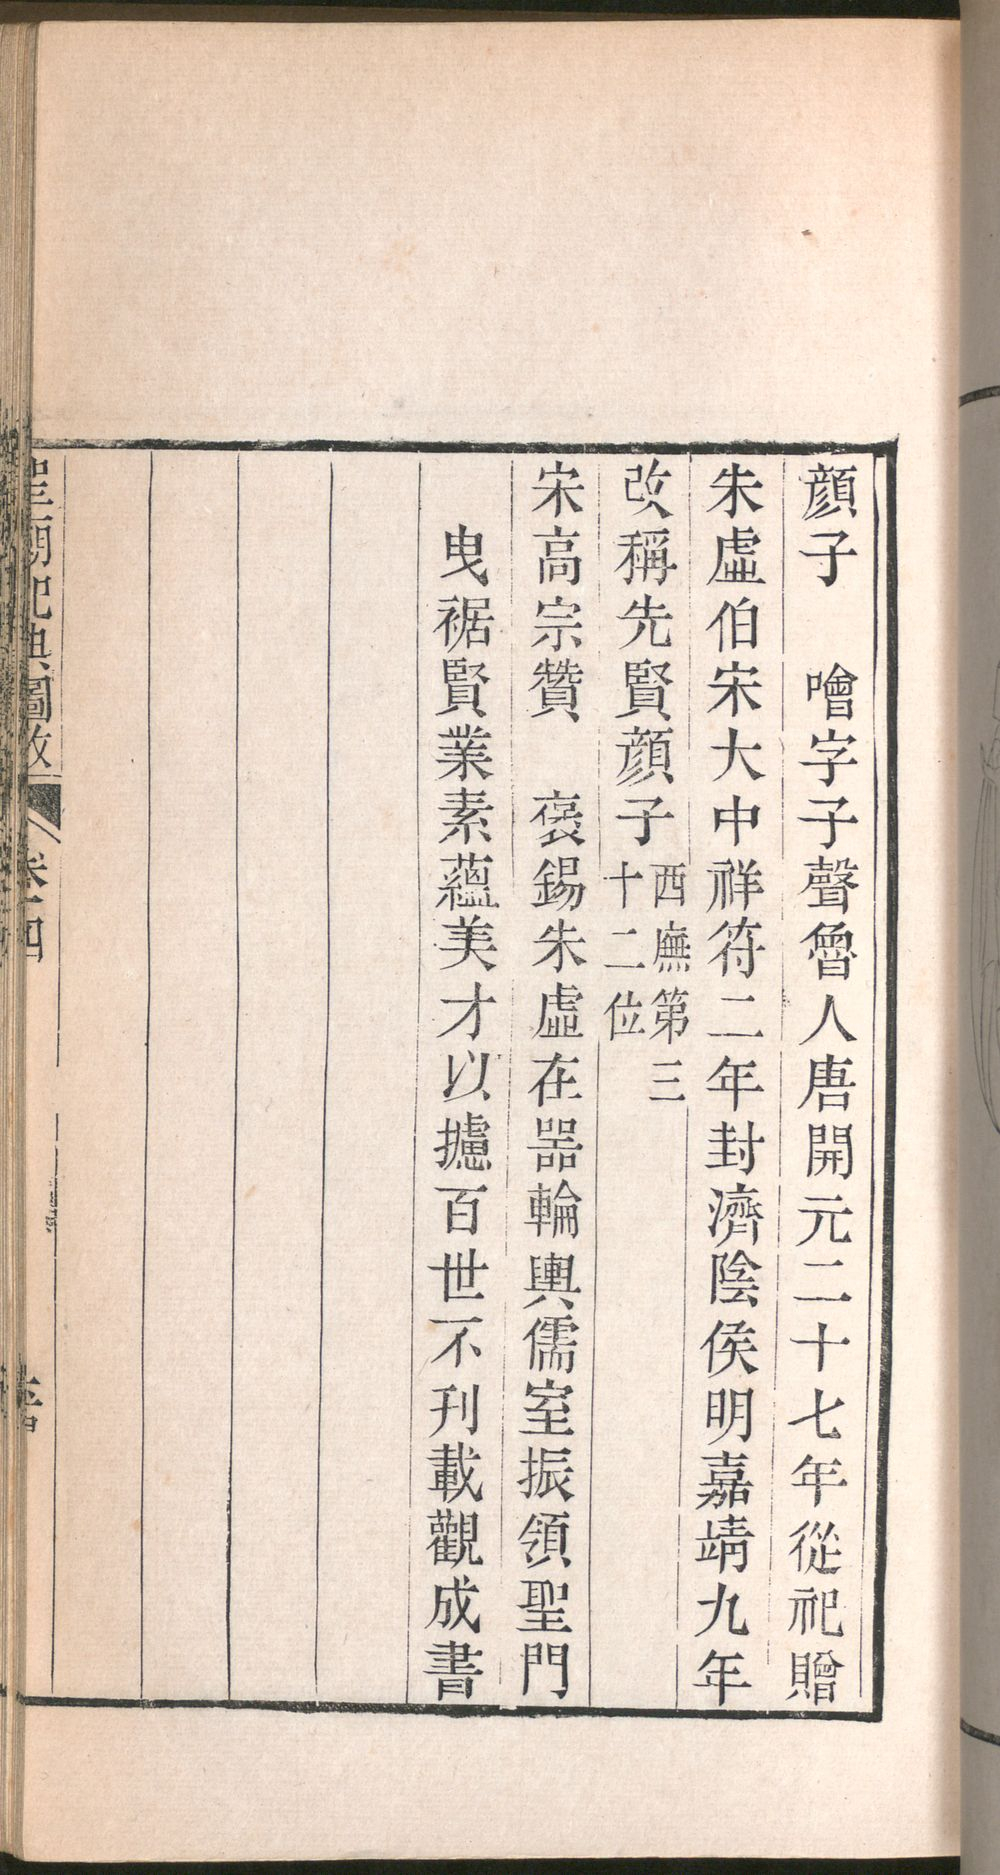 顔子　噲字子聲魯人唐開元二十七年從祀贈
朱虛伯宋大中祥符二年封濟陰侯明嘉靖九年
改稱先賢顔子西廡第三
十二位
宋高宗贊　褒錫朱虛在器輪輿儒室振領聖門
曳裾賢業素蘊美才以攄百世不刋載觀成書
聖廟祀典圖攷
卷四